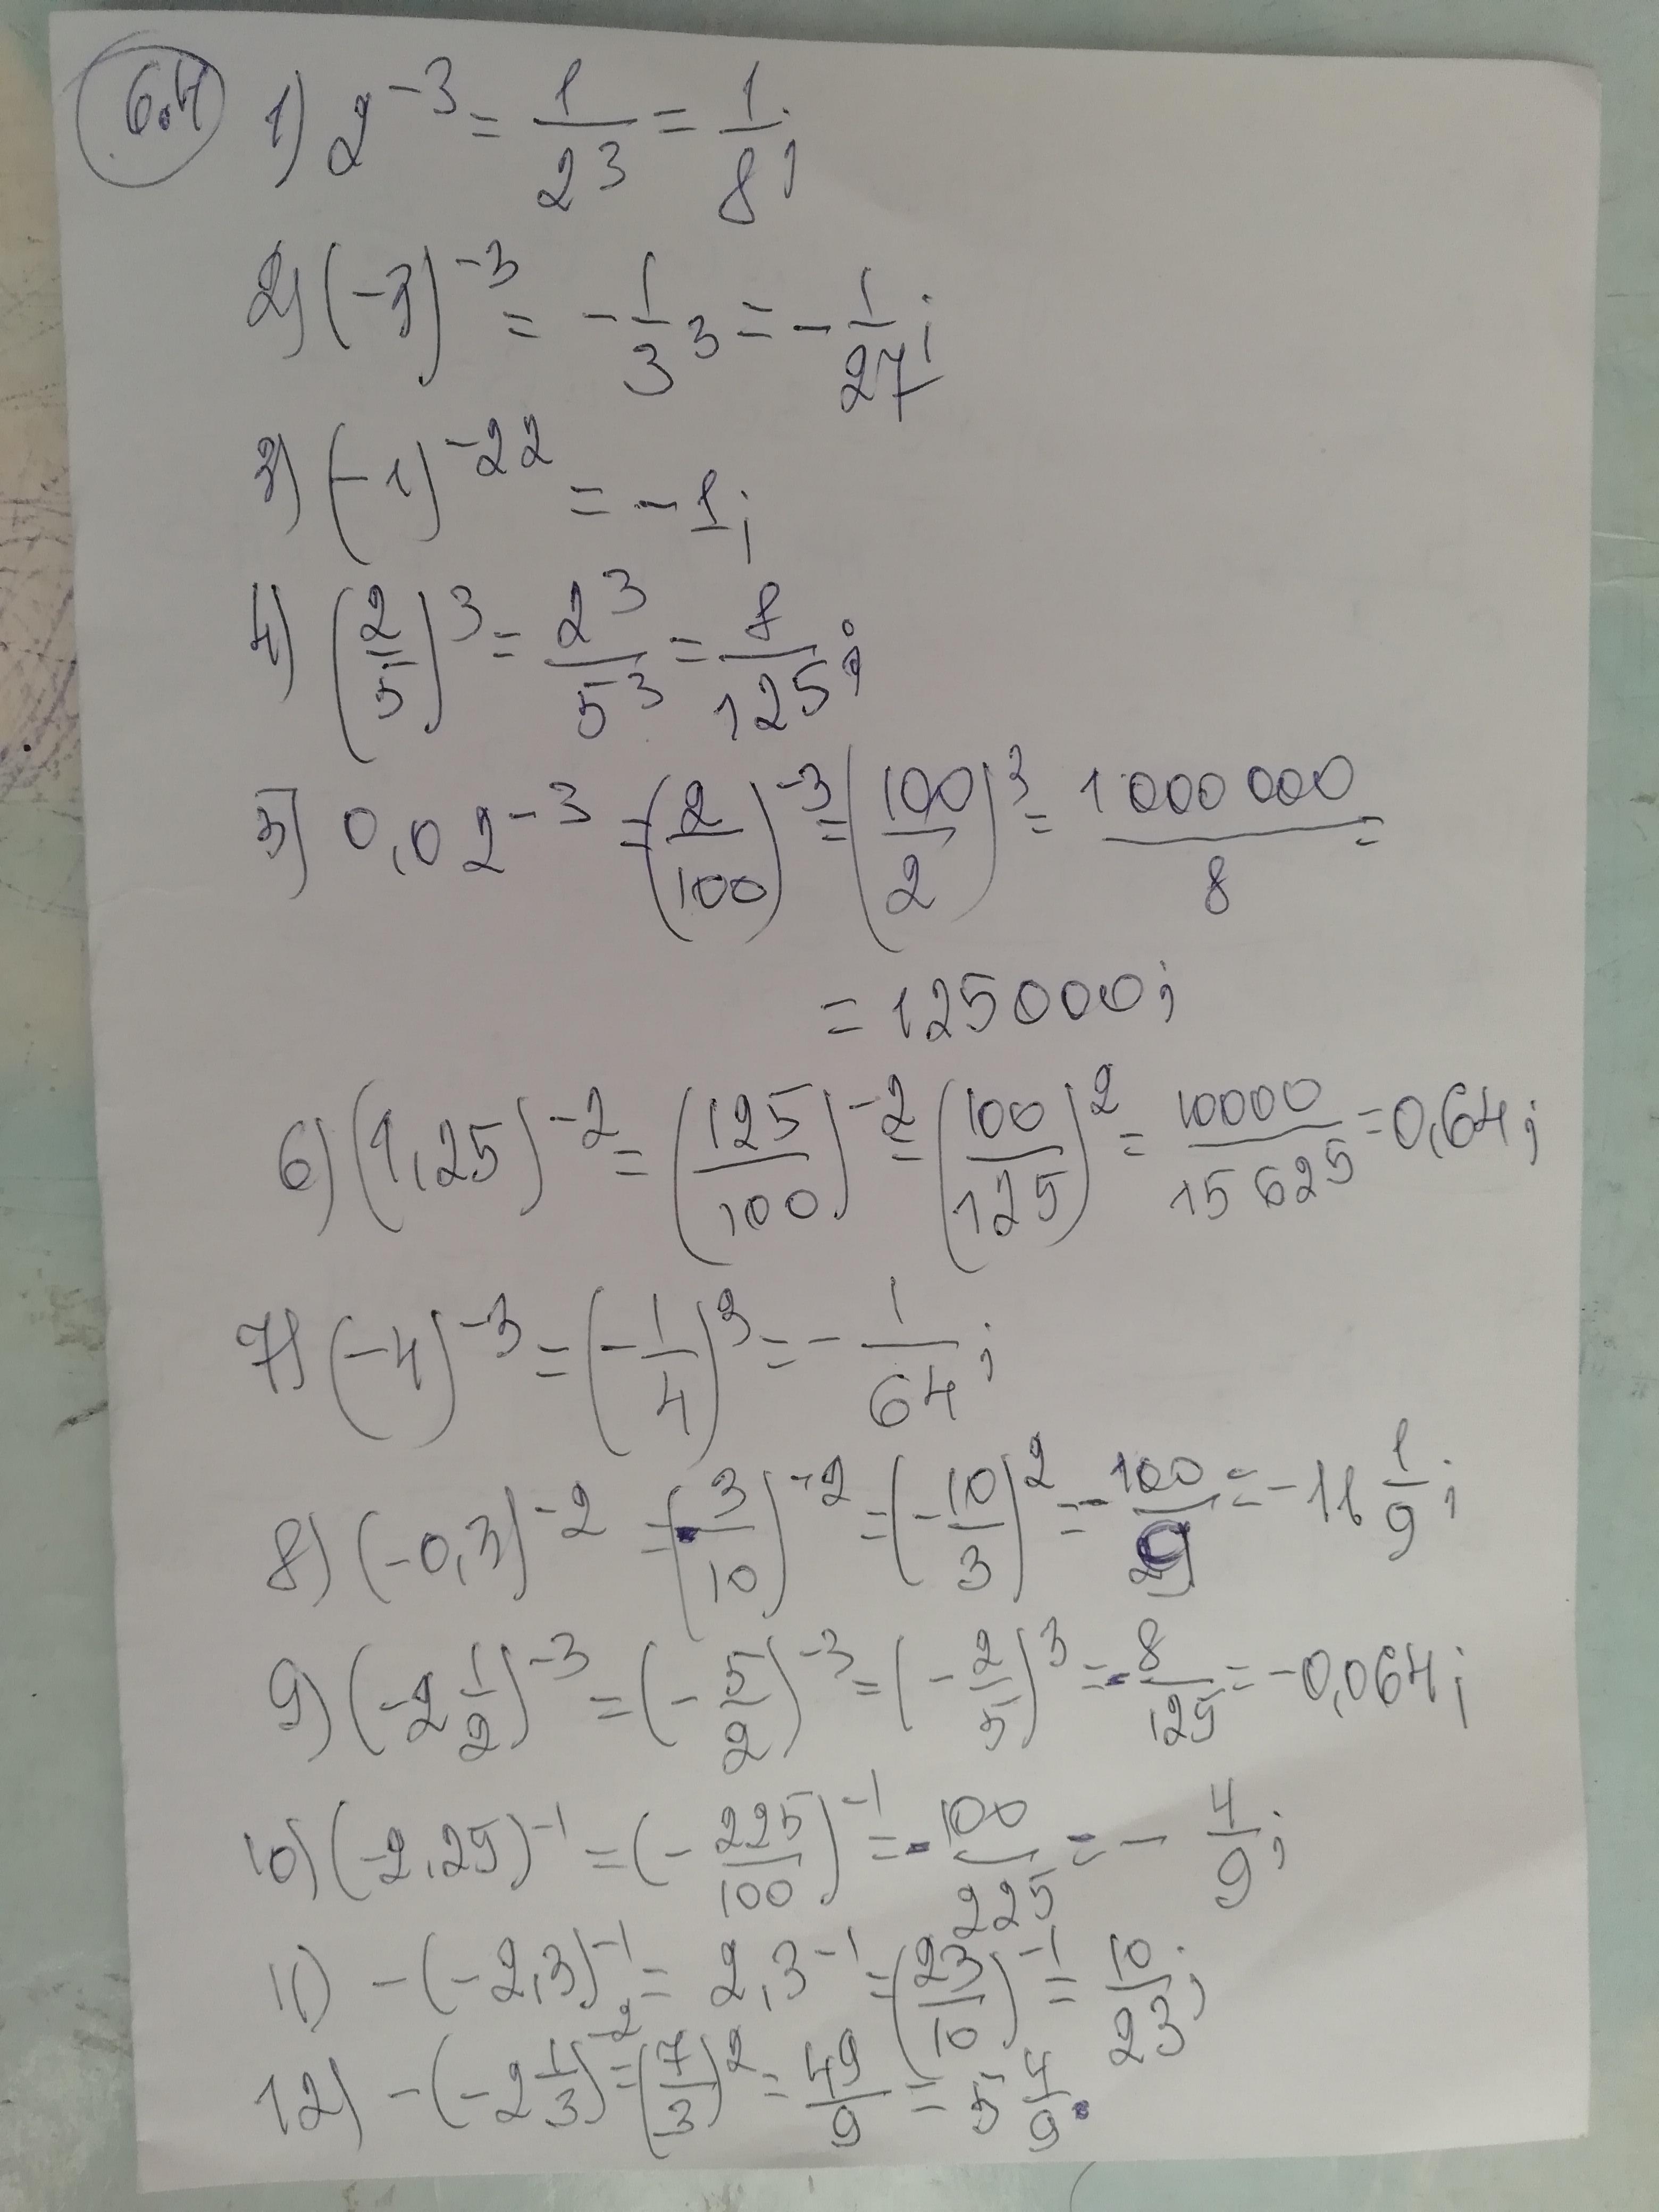 6.4 1) 2^-3 = 1/2^3 = 1/8;
2) (-3)^-3 = -1/3^3 = -1/27;
3) (-1)^-22 = -1;
4) (2/5)^3 = 2^3/5^3 = 8/125;
5) 0,02^-3 = (2/100)^-3 = (100/2)^3 = 1000 000/8 =
= 125000;
6) (1,25)^-2 = (125/100)^-2 = (100/125)^2 = 10000/15625 = 0,64;
7) (-4)^-3 = (-1/4)^3 = -1/64;
8) (-0,3)^-2 = (-3/10)^-2 = (-10/3)^2 = -100/9 = -11 1/9;
9) (-2 1/2)^-3 = (-5/2)^-3 = (-2/5)^3 = -8/125 = -0,064;
10) (-2,25)^-1 = (-225/100)^-1 = -100/225 = -4/9;
11) -(-2,3)^-1 = 2,3^-1 = (23/10)^-1 = 10/23;
12) -(-2 1/3)^-2 = (7/3)^2 = 49/9 = 5,4/9.